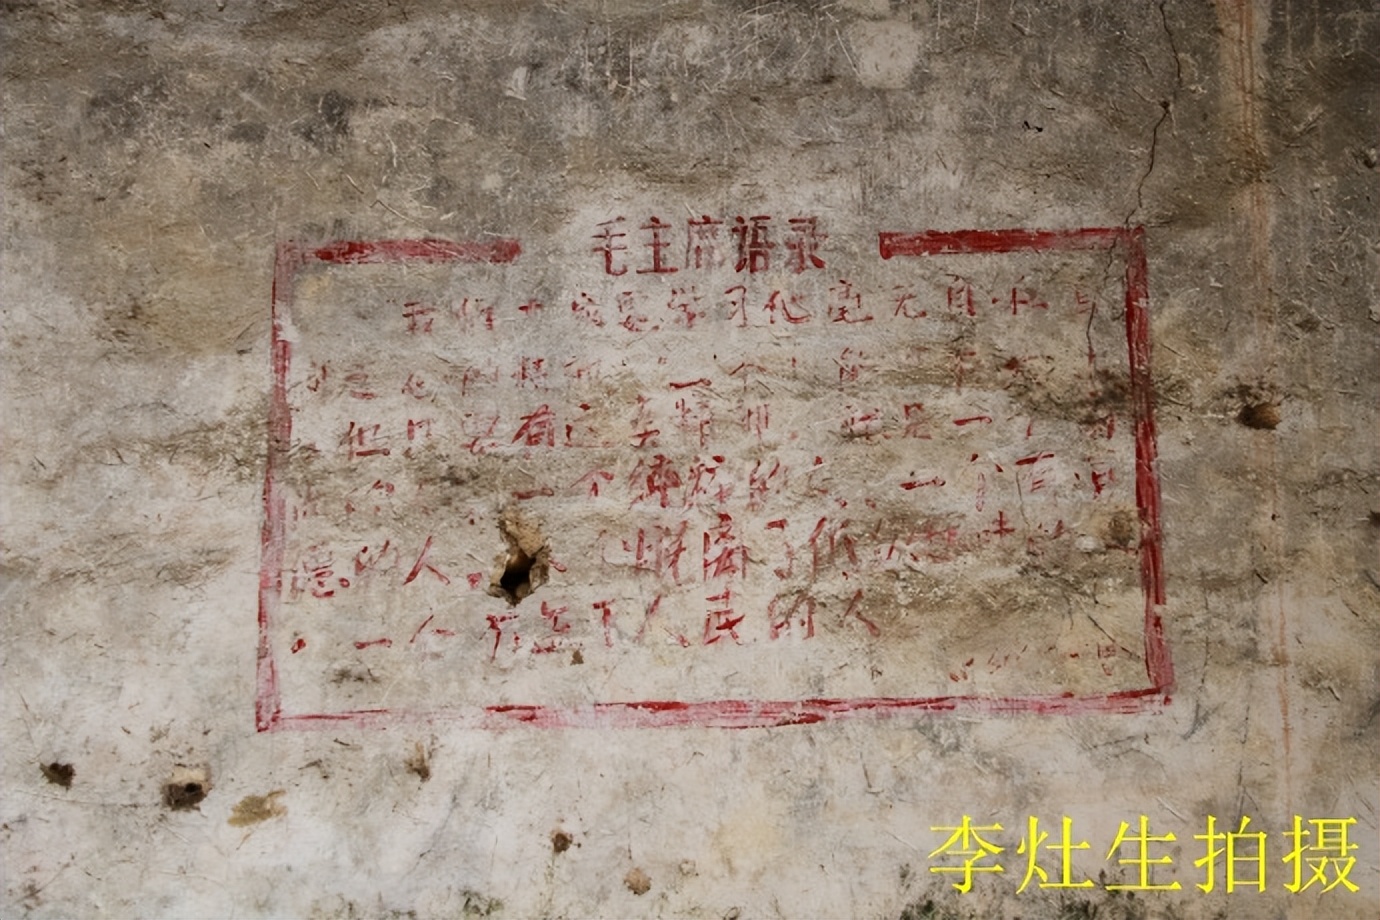 毛主席语录
我们大家要学习他毫无自私自
利之心的精神 一个人能
但只要有这点精神，就是一个高
一个纯粹的人，一个有道
德的人，一个脱离了低级趣味的
，一个有益于人民的人
李灶生拍摄